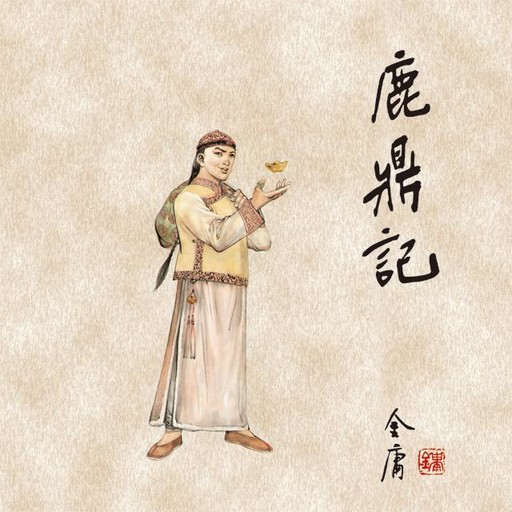 鹿鼎記
金庸